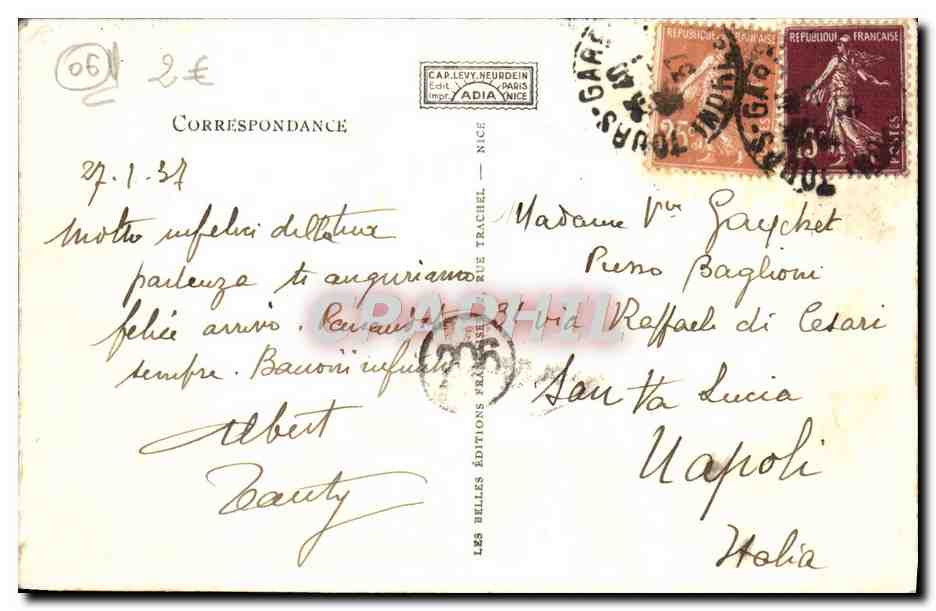 06
2€
CORRESPONDANCE
C.A.P. LEVY. NEURDEIN
Edit. PARIS
Impr. ADIA NICE
REPUBLIQUE FRANÇAISE
25c
REPUBLIQUE FRANÇAISE
15c
POSTES
TOURS-GARE
TOURS-GARE
27.1.37
Molto infelici della tua
partenza ti auguriamo
felice arrivo.
sempre. Bacioni infiniti
Albert
LES BELLES ÉDITIONS FRANÇAISES, RUE TRACHEL. — NICE
306
CPAPHIL
Madame
Presso Baglioni
31 via Raffaele di Cesari
Santa Lucia
Napoli
Italia